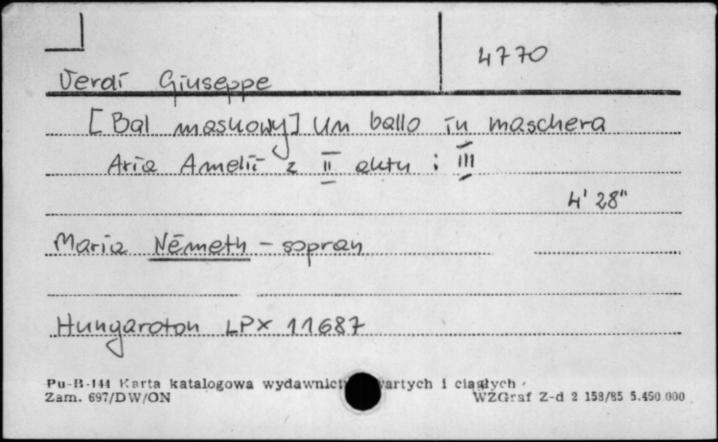 4770
Verdi Giuseppe
[Bal maskowy] Un ballo in maschera
Aria Amelii z II aktu i III
4' 28"
Maria Németh - sopran
Hungaroton LPX 11687
Pu-B-144 Karta katalogowa wydawnict artych i ciągłych
Zam. 697/DW/ON WZGraf Z-d 2 158/85 5.450 000